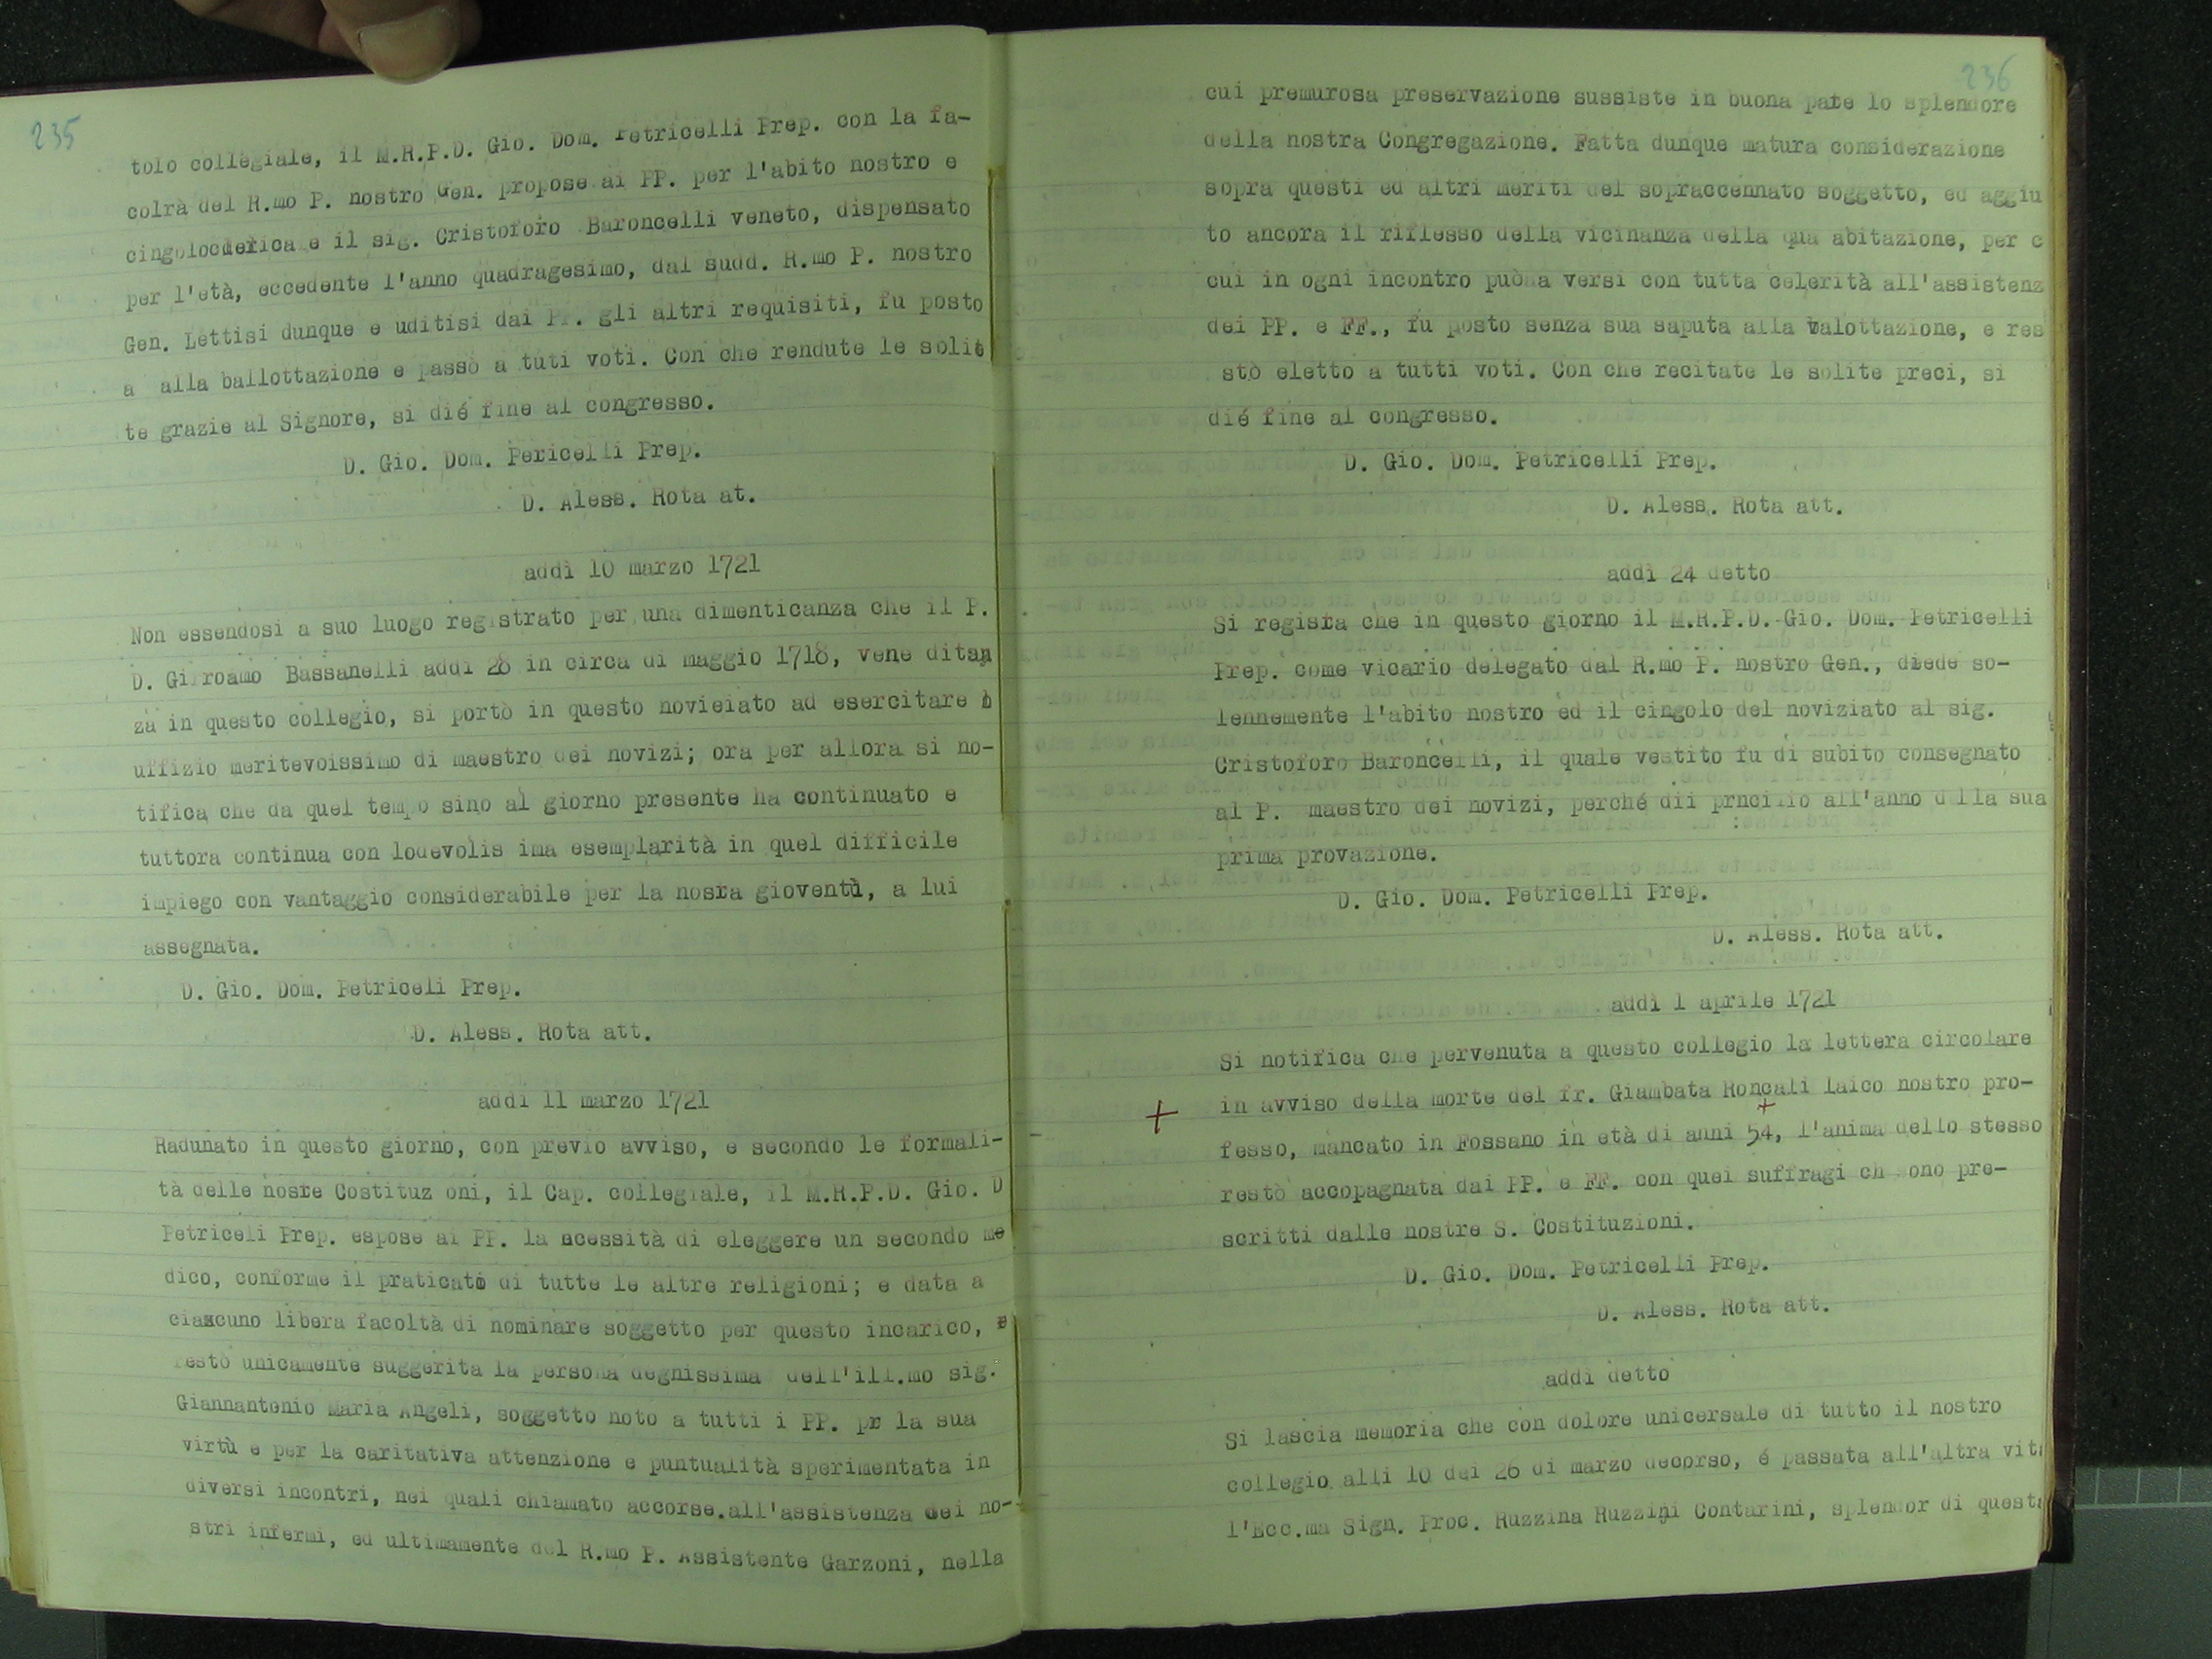 235
tolo collegiale, il M.R.P.D. Gio. Dom. Petricelli Prep. con la fa-
colrà del R.mo P. nostro Gen. propose ai PP. per l'abito nostro e
cingolo e il sig. Cristoforo Baroncelli veneto, dispensato
per l'età, eccedente l'anno quadragesimo, dal sudd. R.mo P. nostro
Gen. Lettisi dunque e uditisi dai PP. gli altri requisiti, fu posto
a alla ballottazione e passò a tuti voti. Con che rendute le solit
te grazie al Signore, si dié fine al congresso.
D. Gio. Dom. Pericelli Prep.
D. Aless. Rota at.
addì 10 marzo 1721
Non essendosi a suo luogo registrato per una dimenticanza che il P.
D. Girroamo Bassanelli addì 28 in circa di maggio 1718, vene di
za in questo collegio, si portò in questo novieiato ad esercitare
uffizio meritevoissimo di maestro dei novizi; ora per allora si no-
tifica che da quel tempo sino al giorno presente ha continuato e
tuttora continua con lodevolis ima esemplarità in quel difficile
impiego con vantaggio considerabile per la nosra gioventù, a lui
assegnata.
D. Gio. Dom. Petriceli Prep.
D. Aless. Rota att.
addì 11 marzo 1721
Radunato in questo giorno, con previo avviso, e secondo le formali-
tà delle nosre Costituz oni, il Cap. collegiale, il M.R.P.D. Gio. D
Petriceli Prep. espose ai PP. la ncessità di eleggere un secondo me
dico, conforme il praticato di tutte le altre religioni; e data a
ciascuno libera facoltà di nominare soggetto per questo incarico,
restò unicamente suggerita la persona degnissima dell'ill.mo sig.
Giannantonio Maria Angeli, soggetto noto a tutti i PP. pr la sua
virtù e per la caritativa attenzione e puntualità sperimentata in
diversi incontri, nei quali chiamato accorse.all'assistenza dei no-
stri infermi, ed ultimamente del R.mo P. Assistente Garzoni, nella
236
cui premurosa preservazione sussiste in buona pate lo splendore
della nostra Congregazione. Fatta dunque matura considerazione
sopra questi ed altri meriti del sopraccennato soggetto, ed aggiu
to ancora il riflesso della vicinanza della qua abitazione, per c
cui in ogni incontro può a versi con tutta celerità all'assistenz
dei PP. e FF., fu posto senza sua saputa alla balottazione, e res
stò eletto a tutti voti. Con che recitate le solite preci, si
dié fine al congresso.
D. Gio. Dom. Petricelli Prep.
D. Aless. Rota att.
addì 24 detto
Si regisra che in questo giorno il M.R.P.D. Gio. Dom. Petricelli
Prep. come vicario delegato dal R.mo P. nostro Gen., diede so-
lennemente l'abito nostro ed il cingolo del noviziato al sig.
Cristoforo Baroncelli, il quale vestito fu di subito consegnato
al P. maestro dei novizi, perché dii all'anno d lla sua
prima provazione.
D. Gio. Dom. Petricelli Prep.
D. Aless. Rota att.
addì 1 aprile 1721
Si notifica che pervenuta a questo collegio la lettera circolare
+ in avviso della morte del fr. Giambata Roncali laico nostro pro-
fesso, mancato in Fossano in età di anni 54, l'anima dello stesso
restò accopagnata dai PP. e FF. con quei suffragi ch sono pre-
scritti dalle nostre S. Costituzioni.
D. Gio. Dom. Petricelli Prep.
D. Aless. Rota att.
addì detto
Si lascia memoria che con dolore unicersale di tutto il nostro
collegio alli 10 dei 26 di marzo decorso, é passata all'altra vita
l'Ecc.ma Sign. Proc. Ruzzina Ruzzini Contarini, splendor di questa